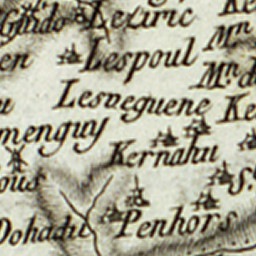 Guido Letiric Ke
en Lespoul Mn
Mn. d
u Lesveguene Ke
menguy
Kernahu
ous S.
Dohadu Penhors